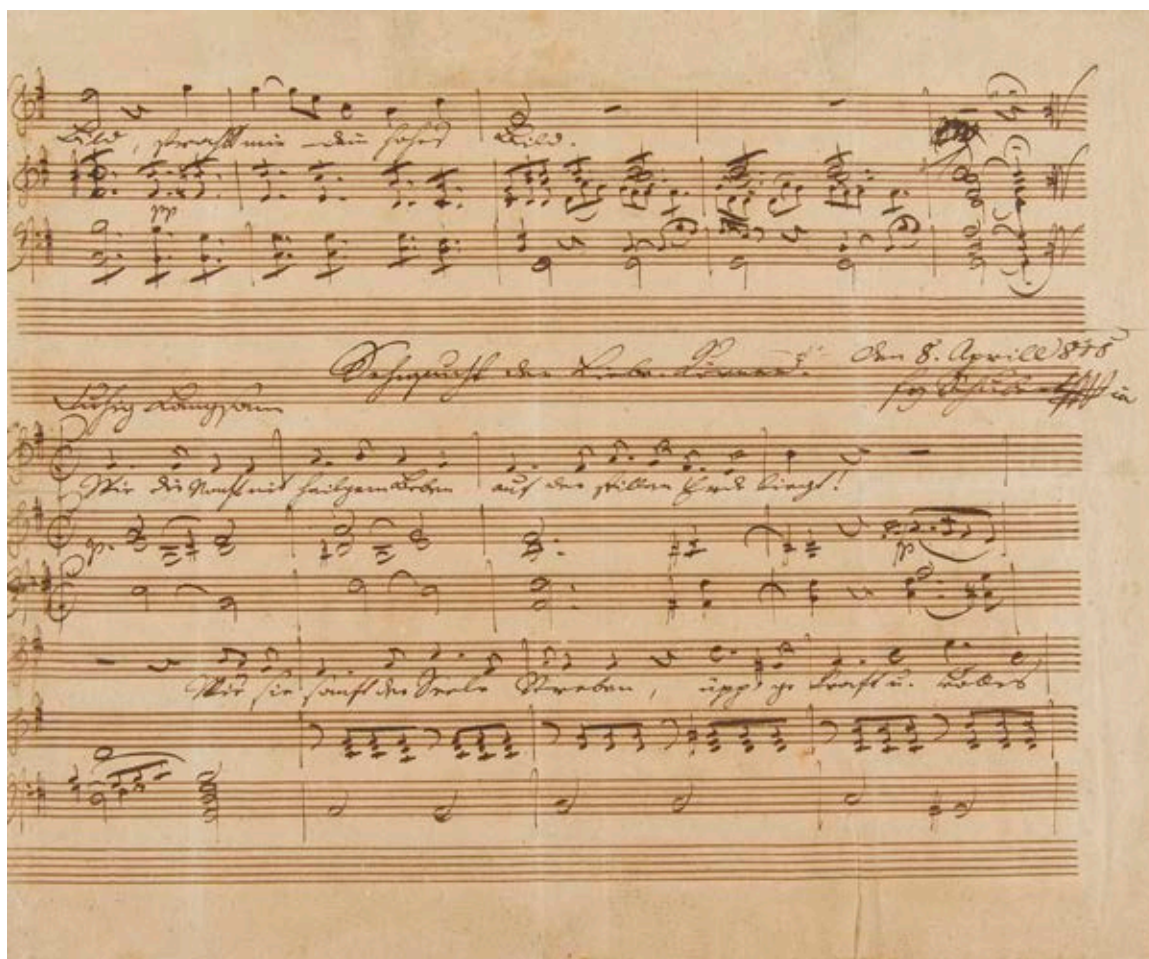 Bild, strahlt mir dein hohes Bild.
pp
Sehnsucht der Liebe. Körner. Den 8. Aprill 815
Ruhig Langsam frz Schubert
Wie die Nacht mit heilgem Beben auf der stillen Erde liegt!
p. pp
Wie sie sanft der Seele Streben, üpp'ge Kraft u. volles